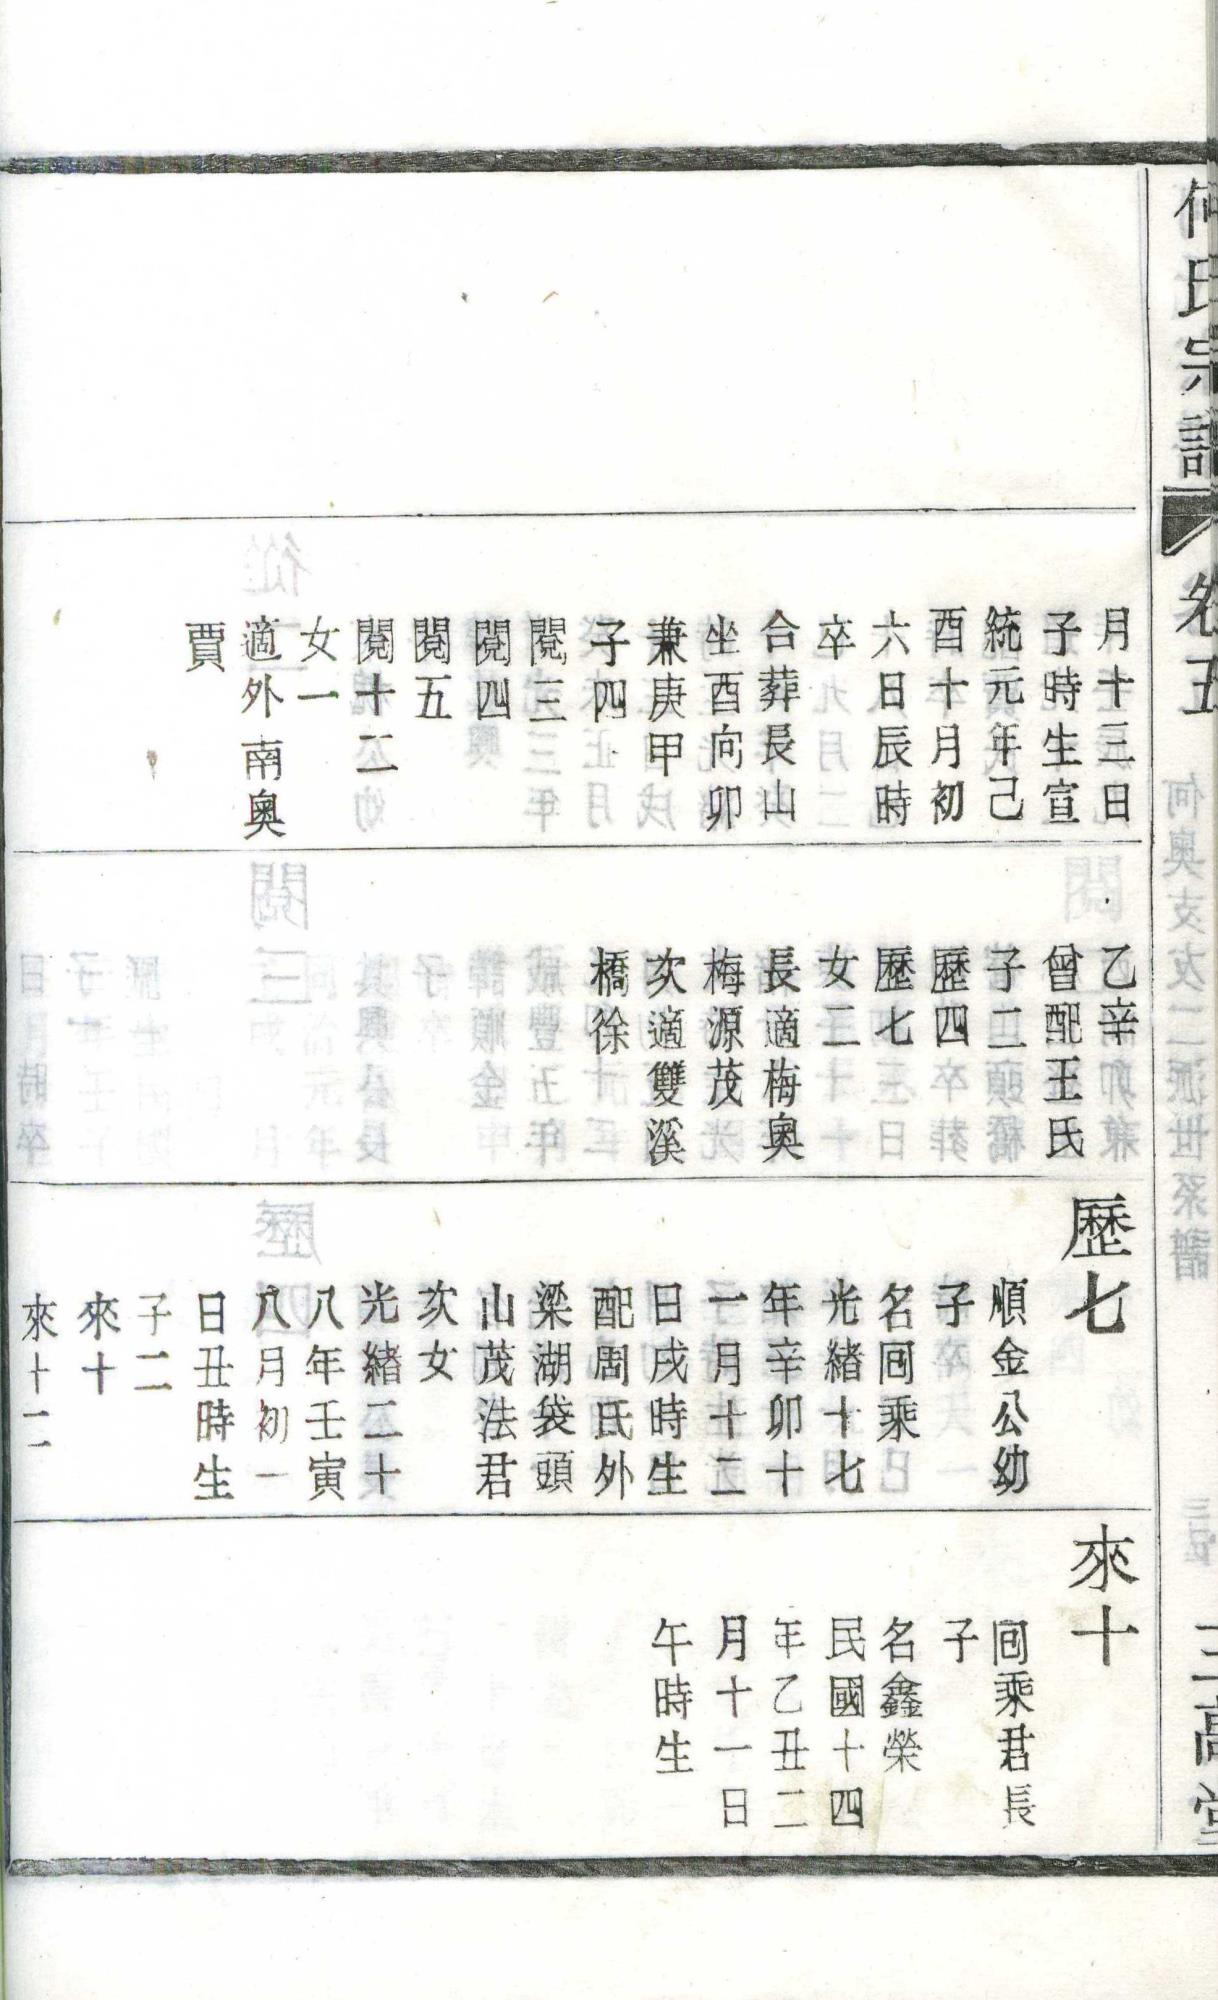 何氏宗譜
卷五
三高堂
月十三日
子時生宣
統元年己
酉十月初
六日辰時
卒
合葬長山
坐酉向卯
兼庚甲
子四
閱三
閱四
閱五
閱十二
女一
適外南奧
賈
乙辛
曾配王氏
子二
歷四
歷七
女二
長適梅奧
梅源茂
次適雙溪
橋徐
歷七
順金公幼
子
名囘乘
光緒十七
年辛卯十
一月十二
日戌時生
配周氏外
梁湖袋頭
山茂法君
次女
光緒二十
八年壬寅
八月初一
日丑時生
子二
來十
來十二
來十
囘乘君長
子
名鑫榮
民國十四
年乙丑二
月十一日
午時生